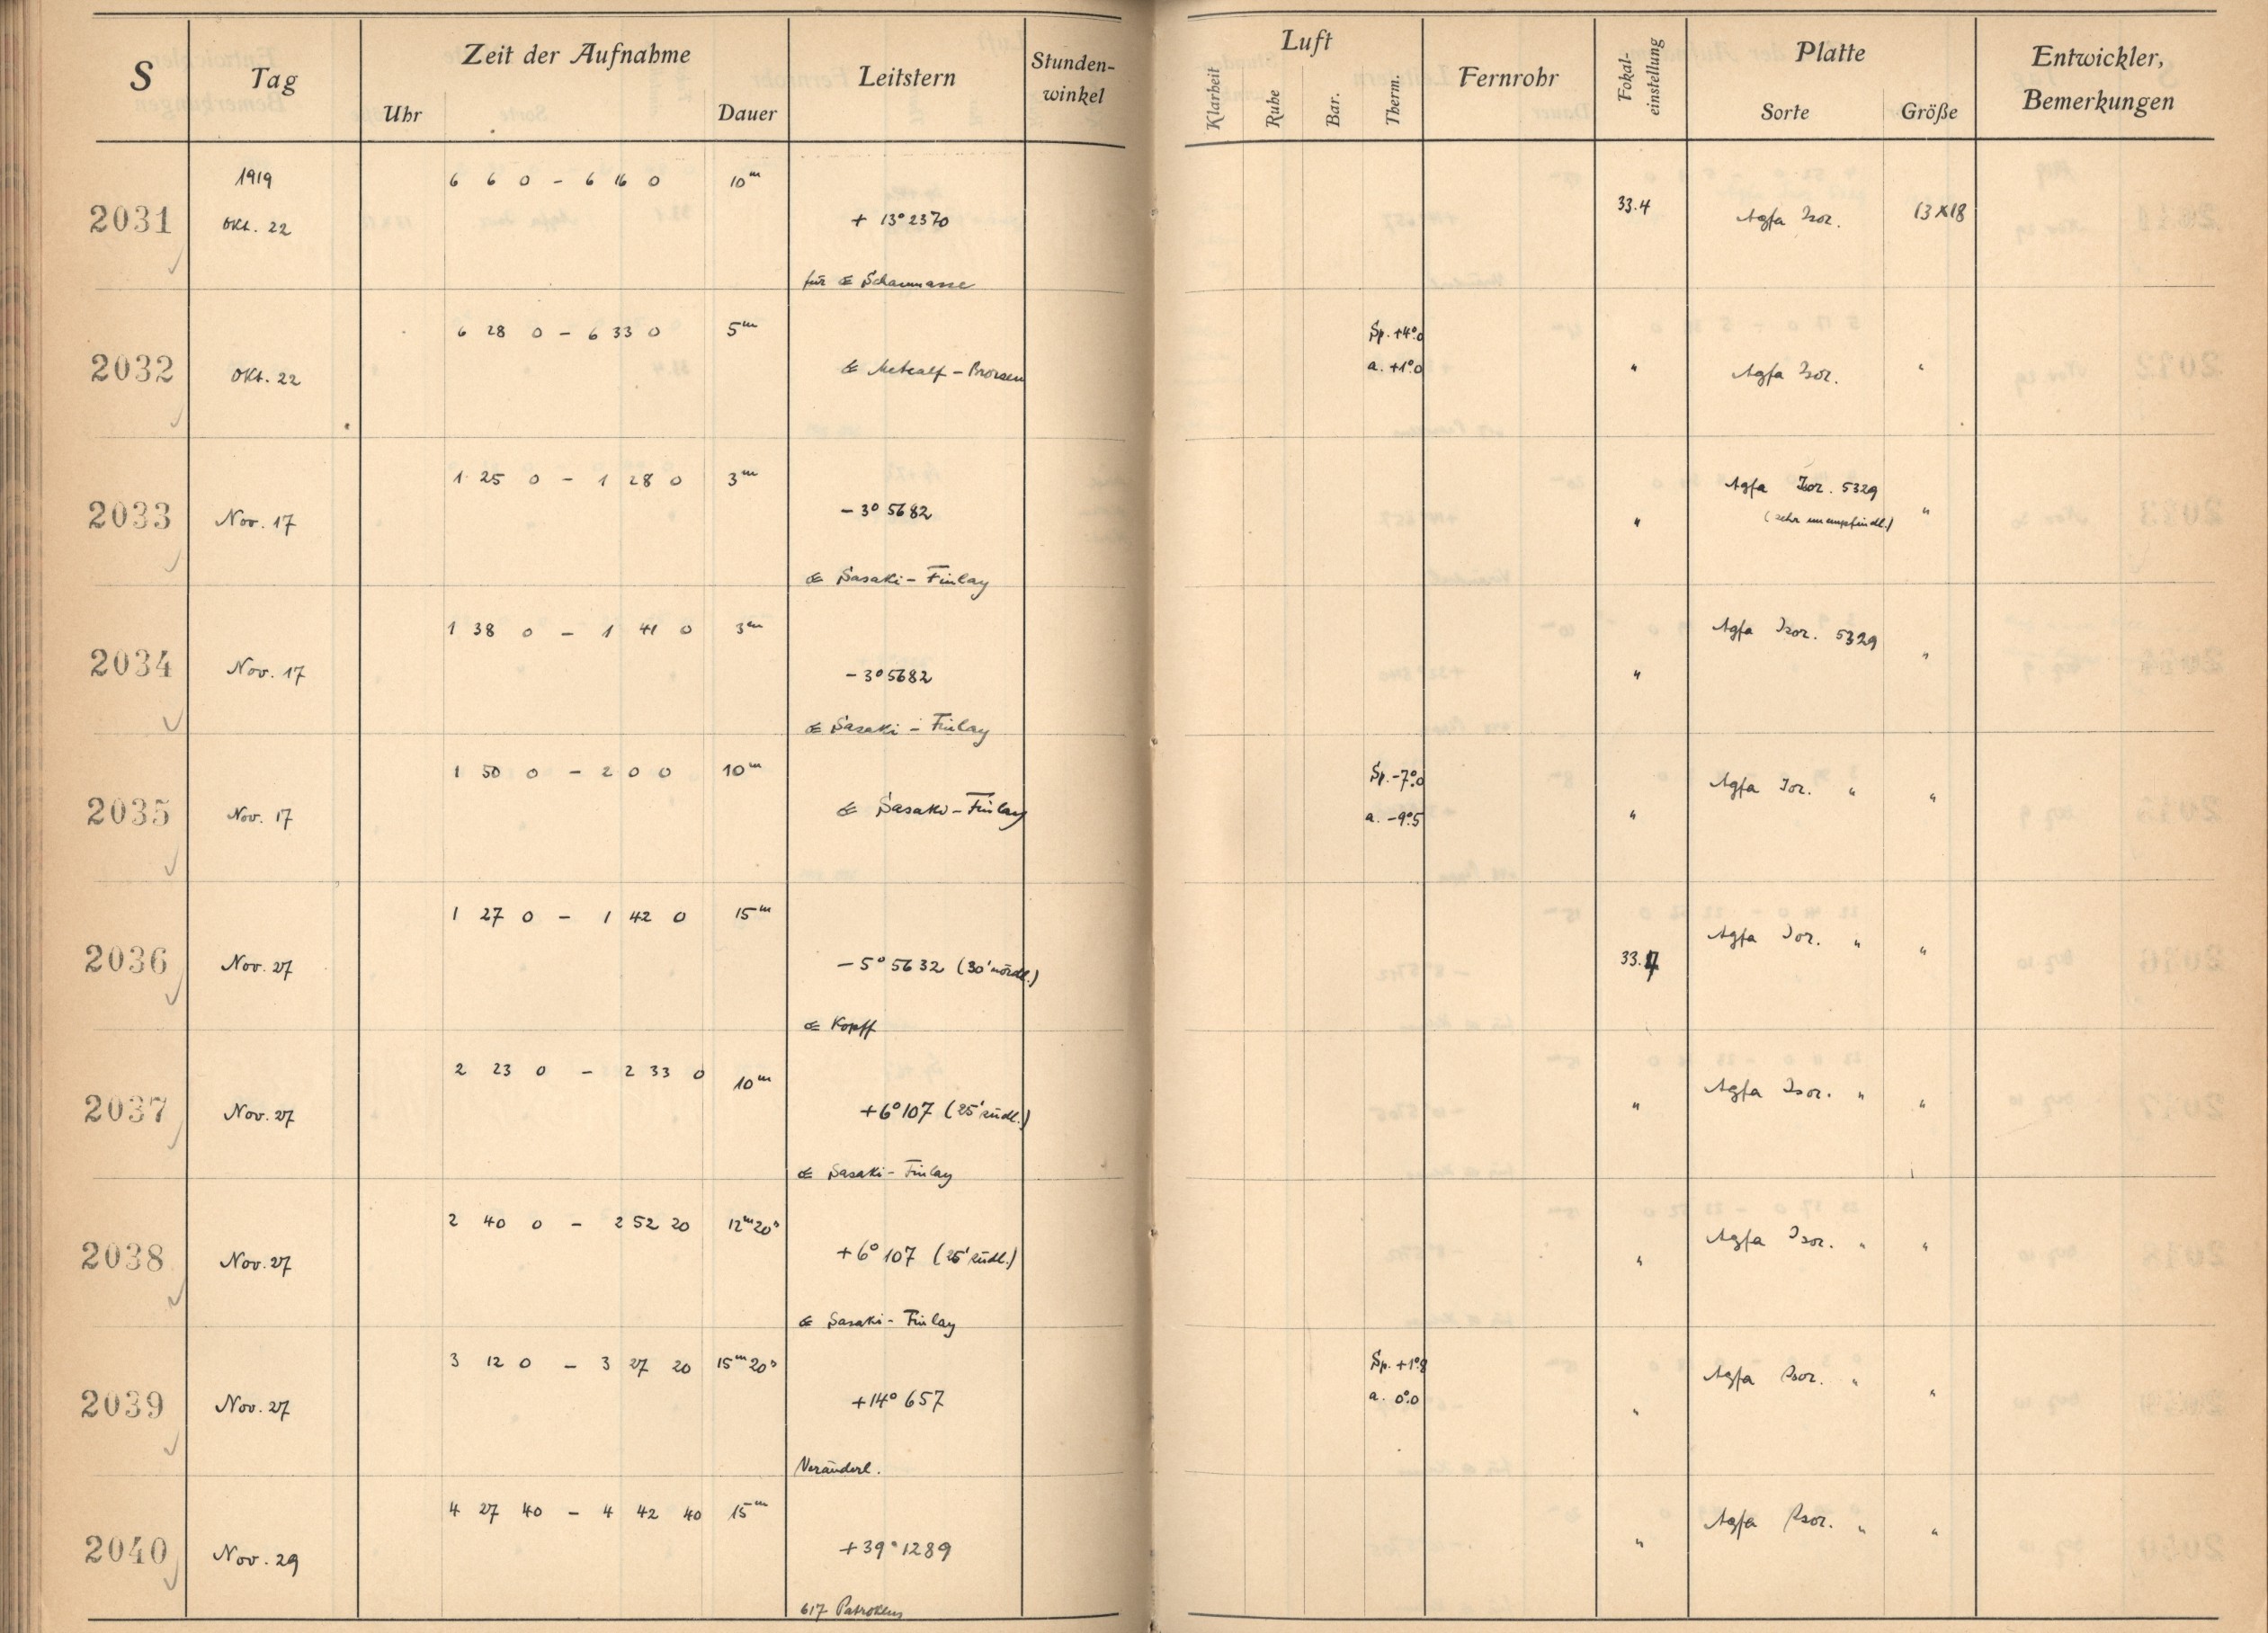 S Tag Zeit der Aufnahme Uhr Dauer Leitstern Stunden-winkel Luft Klarheit Ruhe Bar. Therm. Fernrohr Fokal-einstellung Platte Sorte Größe Entwickler, Bemerkungen
1919 6 6 0 – 6 16 0 10ᵐ
2031 Okt. 22 + 13° 2370 33.4 Agfa Isor. 13×18
für ☄ Schaumasse
6 28 0 – 6 33 0 5ᵐ Sp. +4°.0
2032 Okt. 22 ☄ Metcalf – Brorsen a. +1°.0 " Agfa Isor. "
1 25 0 – 1 28 0 3ᵐ Agfa Isor. 5329
2033 Nov. 17 – 3° 5682 " (sehr unempfindl.) "
☄ Sasaki – Finlay
1 38 0 – 1 41 0 3ᵐ Agfa Isor. 5329
2034 Nov. 17 – 3° 5682 " "
☄ Sasaki – Finlay
1 50 0 – 2 0 0 10ᵐ Sp. –7°.0 Agfa Isor. "
2035 Nov. 17 ☄ Sasaki – Finlay a. –9°.5 " "
1 27 0 – 1 42 0 15ᵐ Agfa Isor. "
2036 Nov. 27 – 5° 5632 (30' nördl.) 33.4 "
☄ Kopff
2 23 0 – 2 33 0 10ᵐ Agfa Isor. "
2037 Nov. 27 +6° 107 (25' südl.) " "
☄ Sasaki – Finlay
2 40 0 – 2 52 20 12ᵐ 20ˢ Agfa Isor. "
2038 Nov. 27 +6° 107 (25' südl.) " "
☄ Sasaki – Finlay
3 12 0 – 3 27 20 15ᵐ 20ˢ Sp. +1°.8 Agfa Isor. "
2039 Nov. 27 +14° 657 a. 0°.0 " "
Veränderl.
4 27 40 – 4 42 40 15ᵐ Agfa Isor. "
2040 Nov. 29 +39° 1289 " "
617 Patroklus